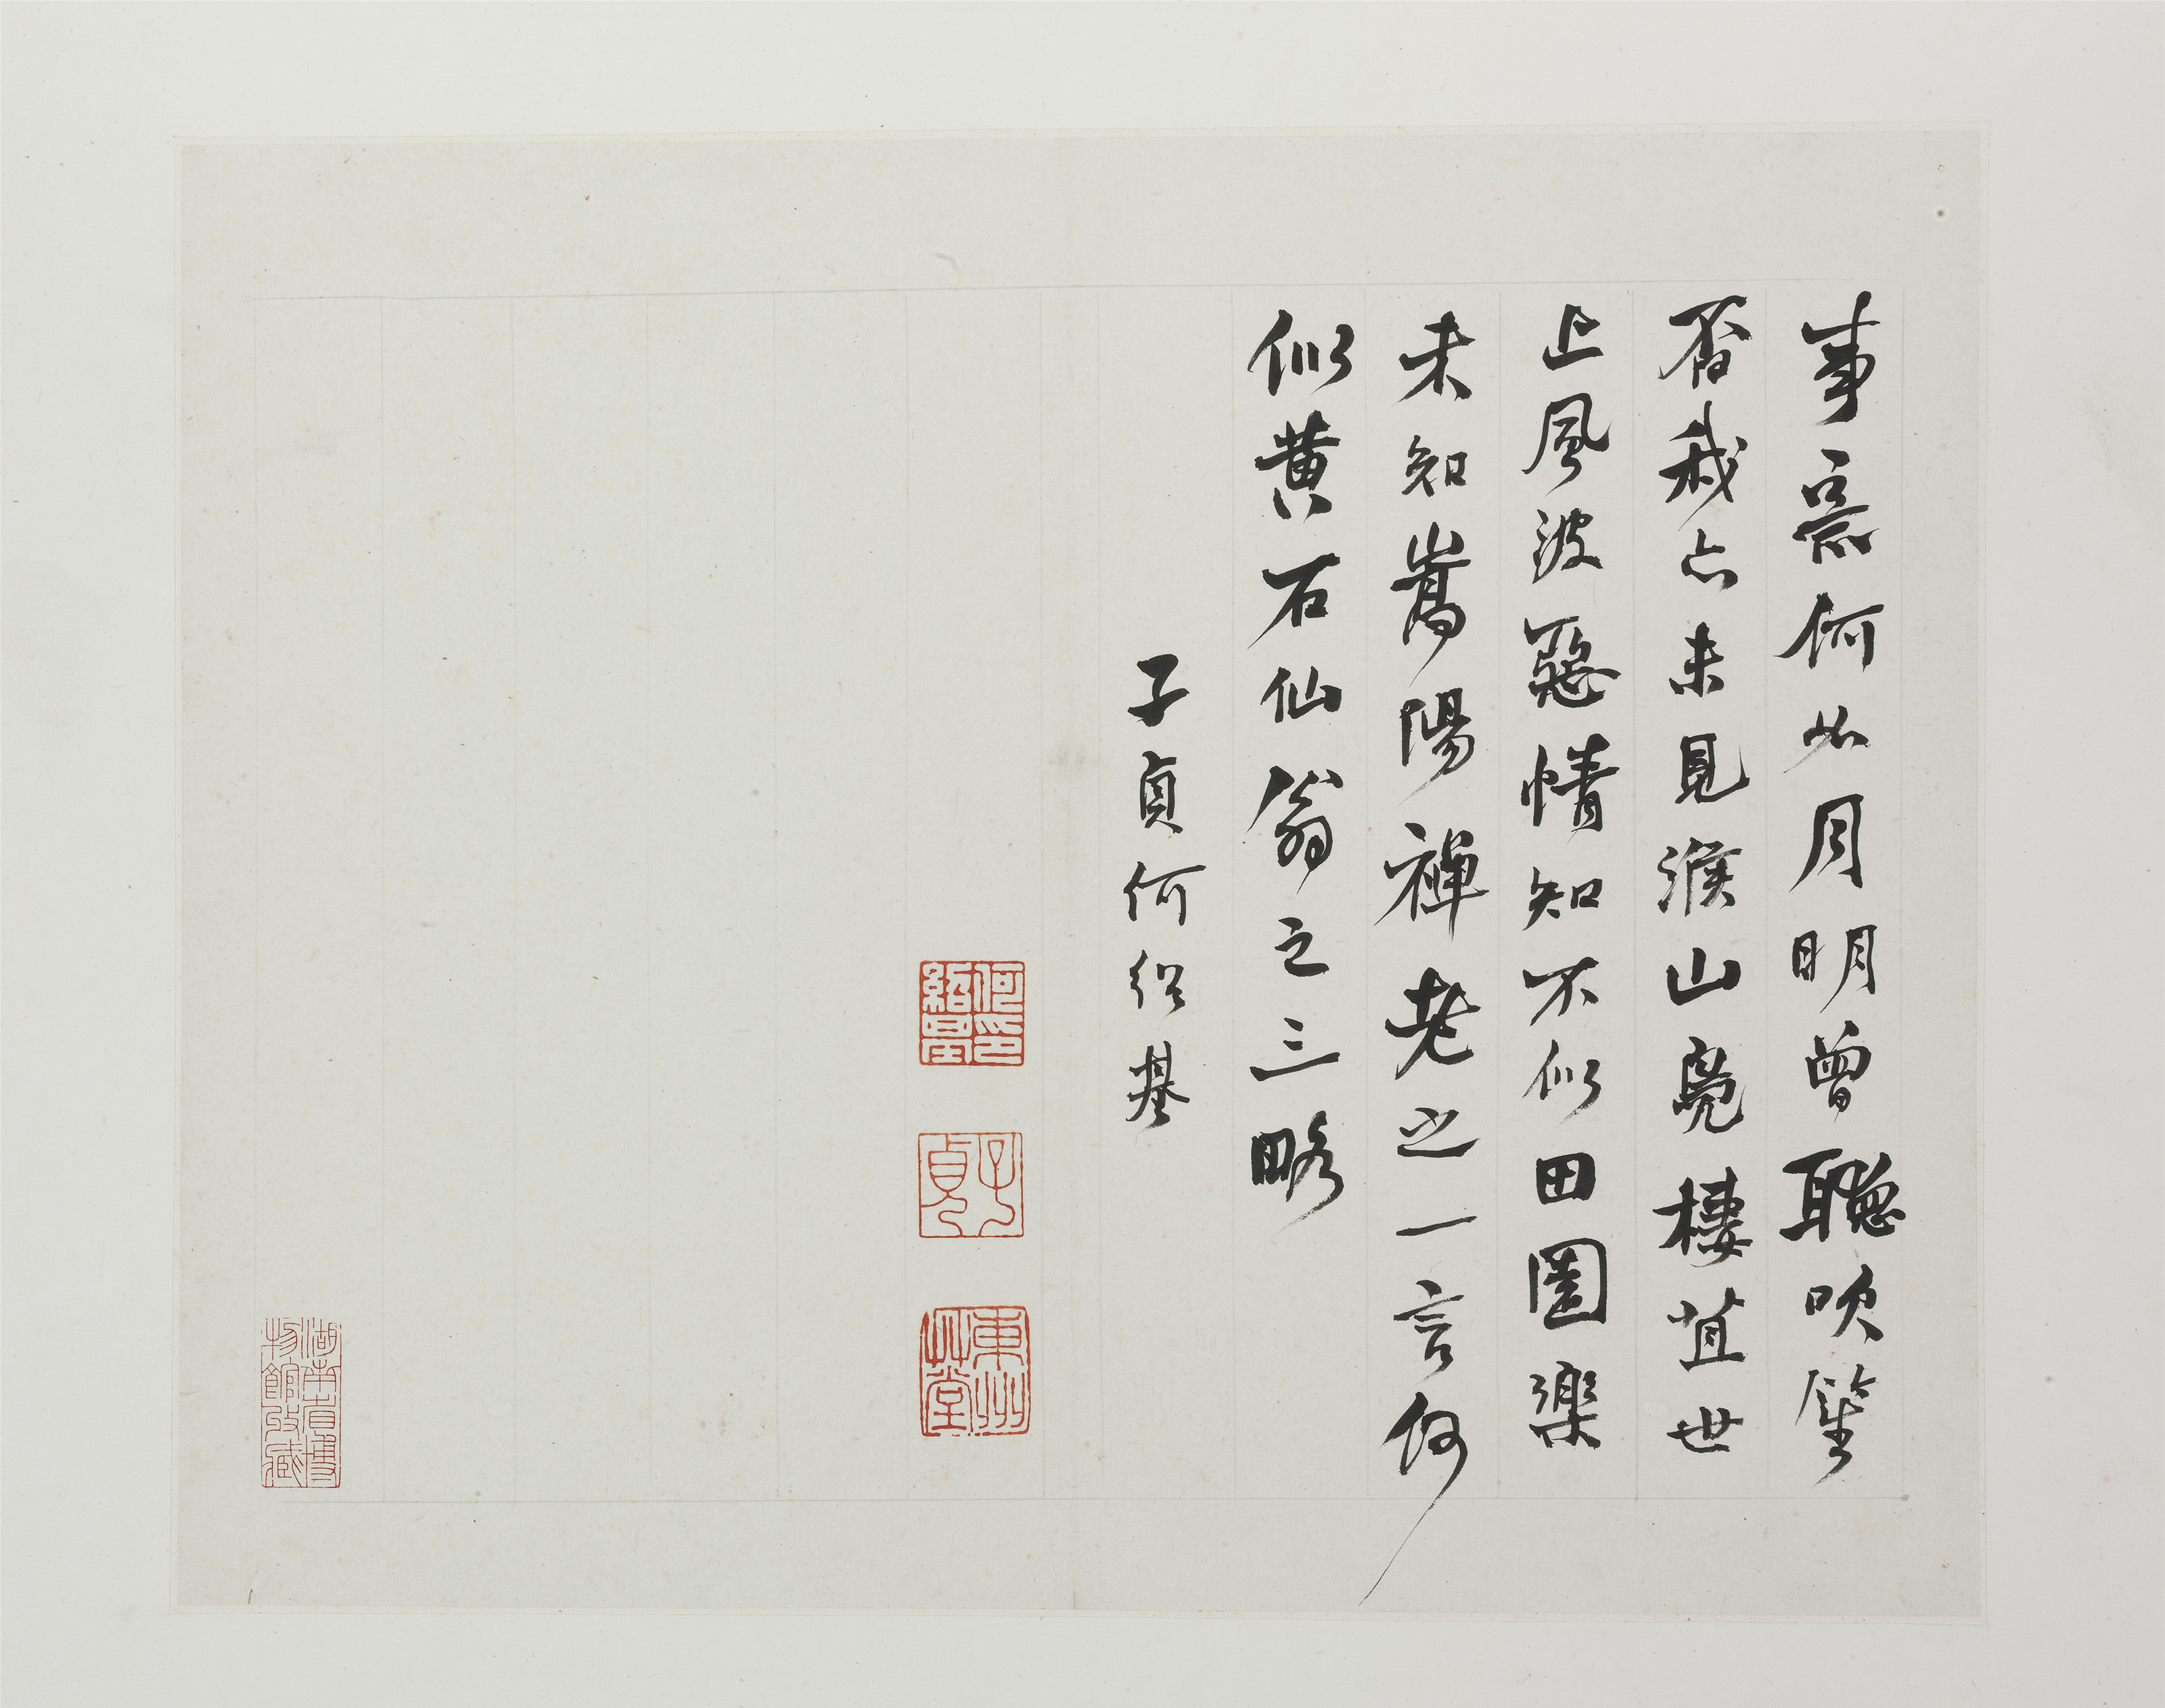 事何如月明曾聽吹笙
否我亦未見緱山鳧棲苴世
上風波惡情知不似田園樂
未知嵩陽禪老之一言何
似黃石仙翁之三略
子貞何紹基
何紹基印
子貞
東洲艸堂
湖南省博物館收藏